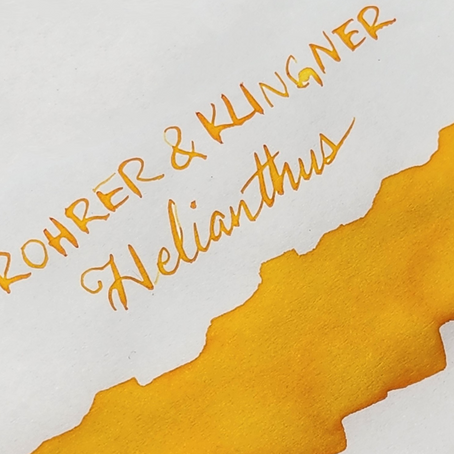 ROHRER & KLINGNER
Helianthus